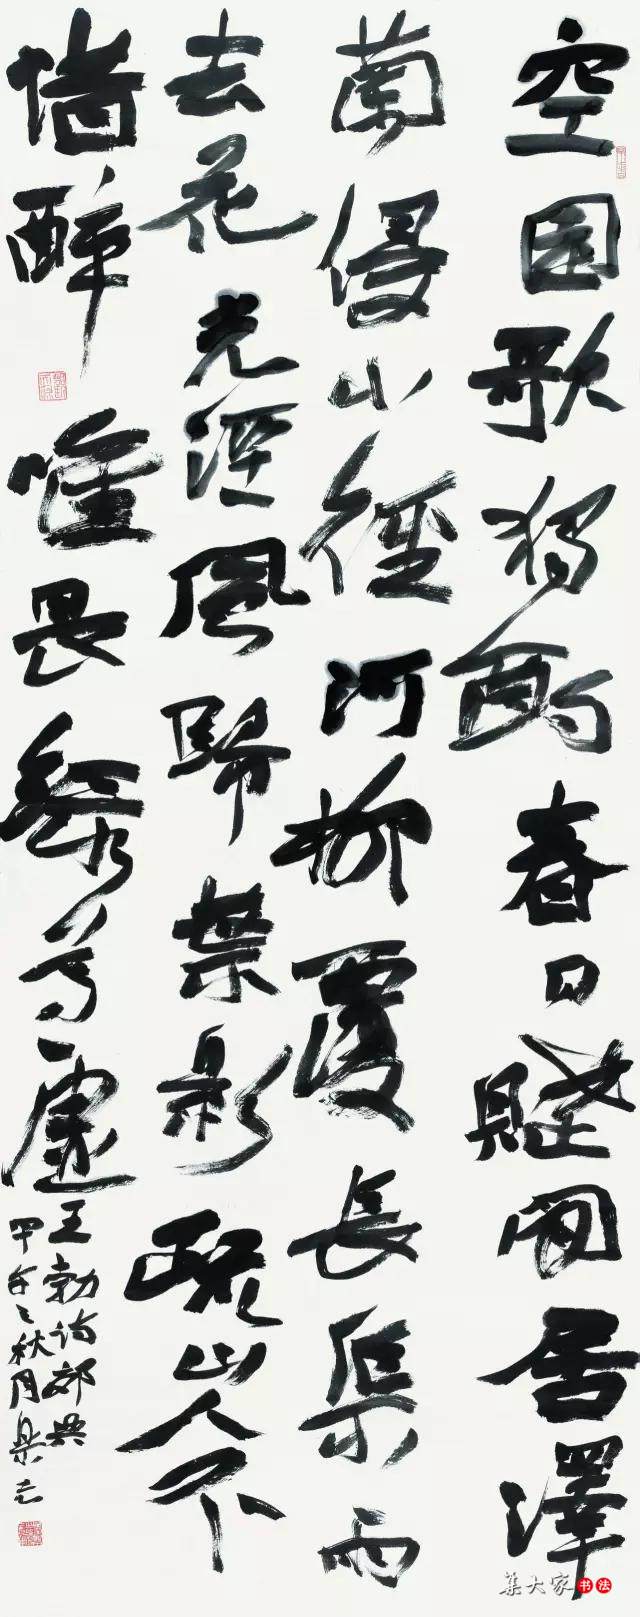 空園歌獨酌春日賦閒居澤
蘭侵小徑河柳覆長渠雨
去花光溼風歸葉影疏山人不
惜醉唯畏綠尊虛
王勃詩郊興
甲午之秋月
集大家书法